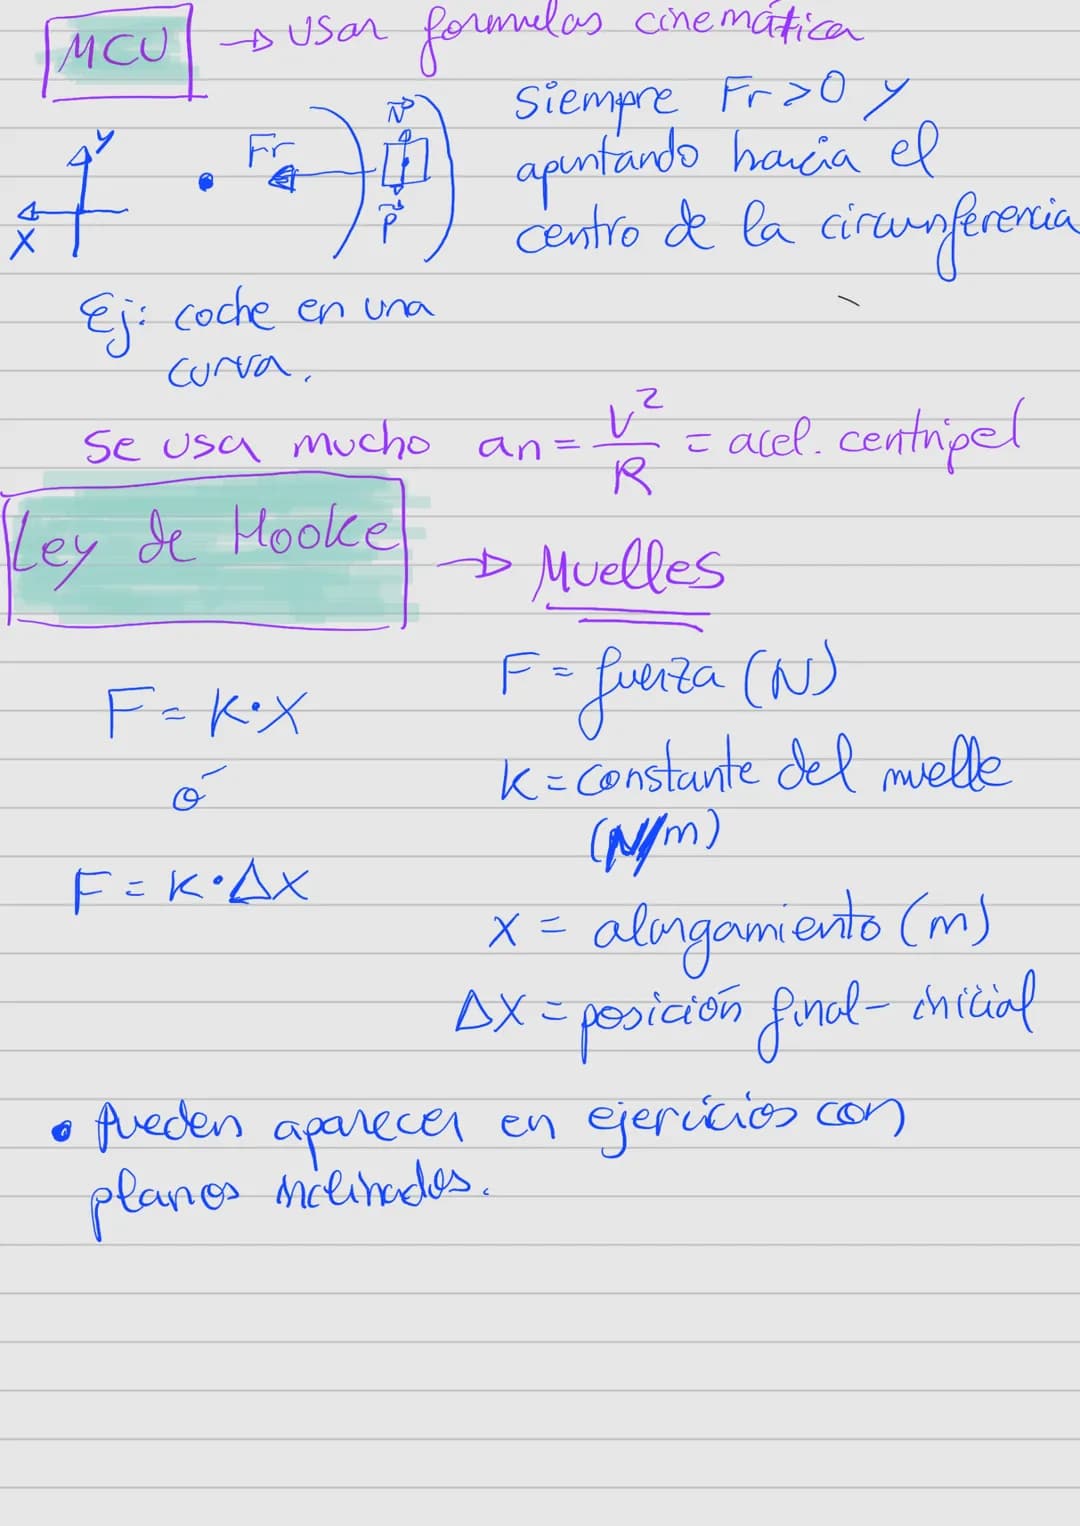 MCU → Usar formulas cinemática
Siempre Fr > 0 y
apuntando hacia el
centro de la circunferencia
Y
X
Fr
N
P
Ej: coche en una
curva.
Se usa mucho an = V²/R = acel. centrípet
Ley de Hooke → Muelles
F = K·X
ó
F = K·ΔX
F = fuerza (N)
K = constante del muelle
(N/m)
X = alargamiento (m)
ΔX = posición final - inicial
• Pueden aparecer en ejercicios con
planos inclinados.